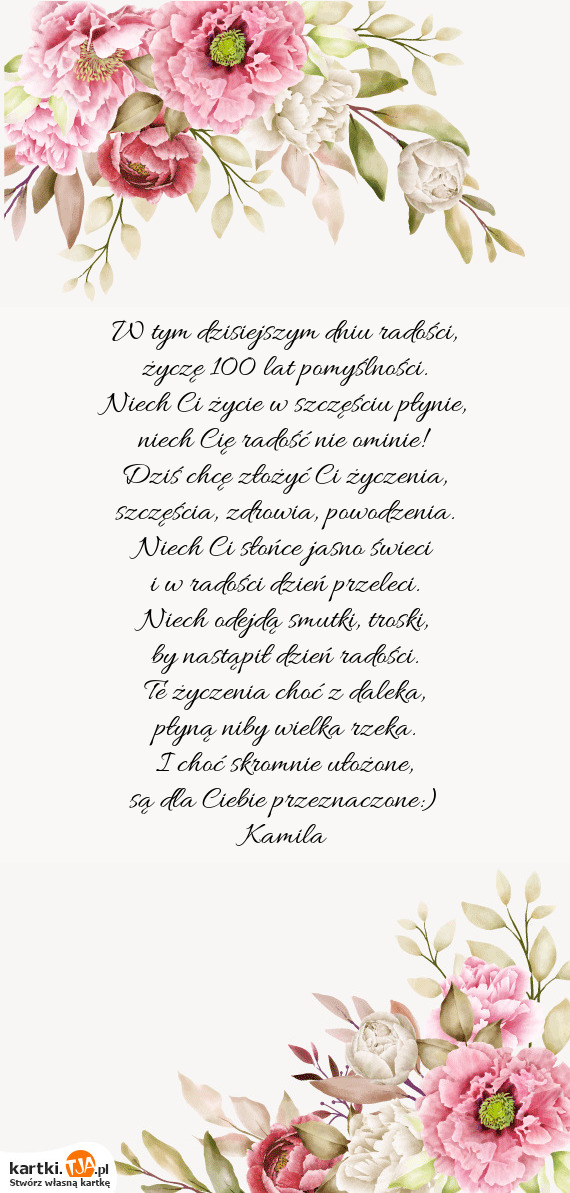 W tym dzisiejszym dniu radości,
życzę 100 lat pomyślności.
Niech Ci życie w szczęściu płynie,
niech Cię radość nie ominie!
Dziś chcę złożyć Ci życzenia,
szczęścia, zdrowia, powodzenia.
Niech Ci słońce jasno świeci
i w radości dzień przeleci.
Niech odejdą smutki, troski,
by nastąpił dzień radości.
Te życzenia choć z daleka,
płyną niby wielka rzeka.
I choć skromnie ułożone,
są dla Ciebie przeznaczone:)
Kamila
kartki.TJA.pl
Stwórz własną kartkę